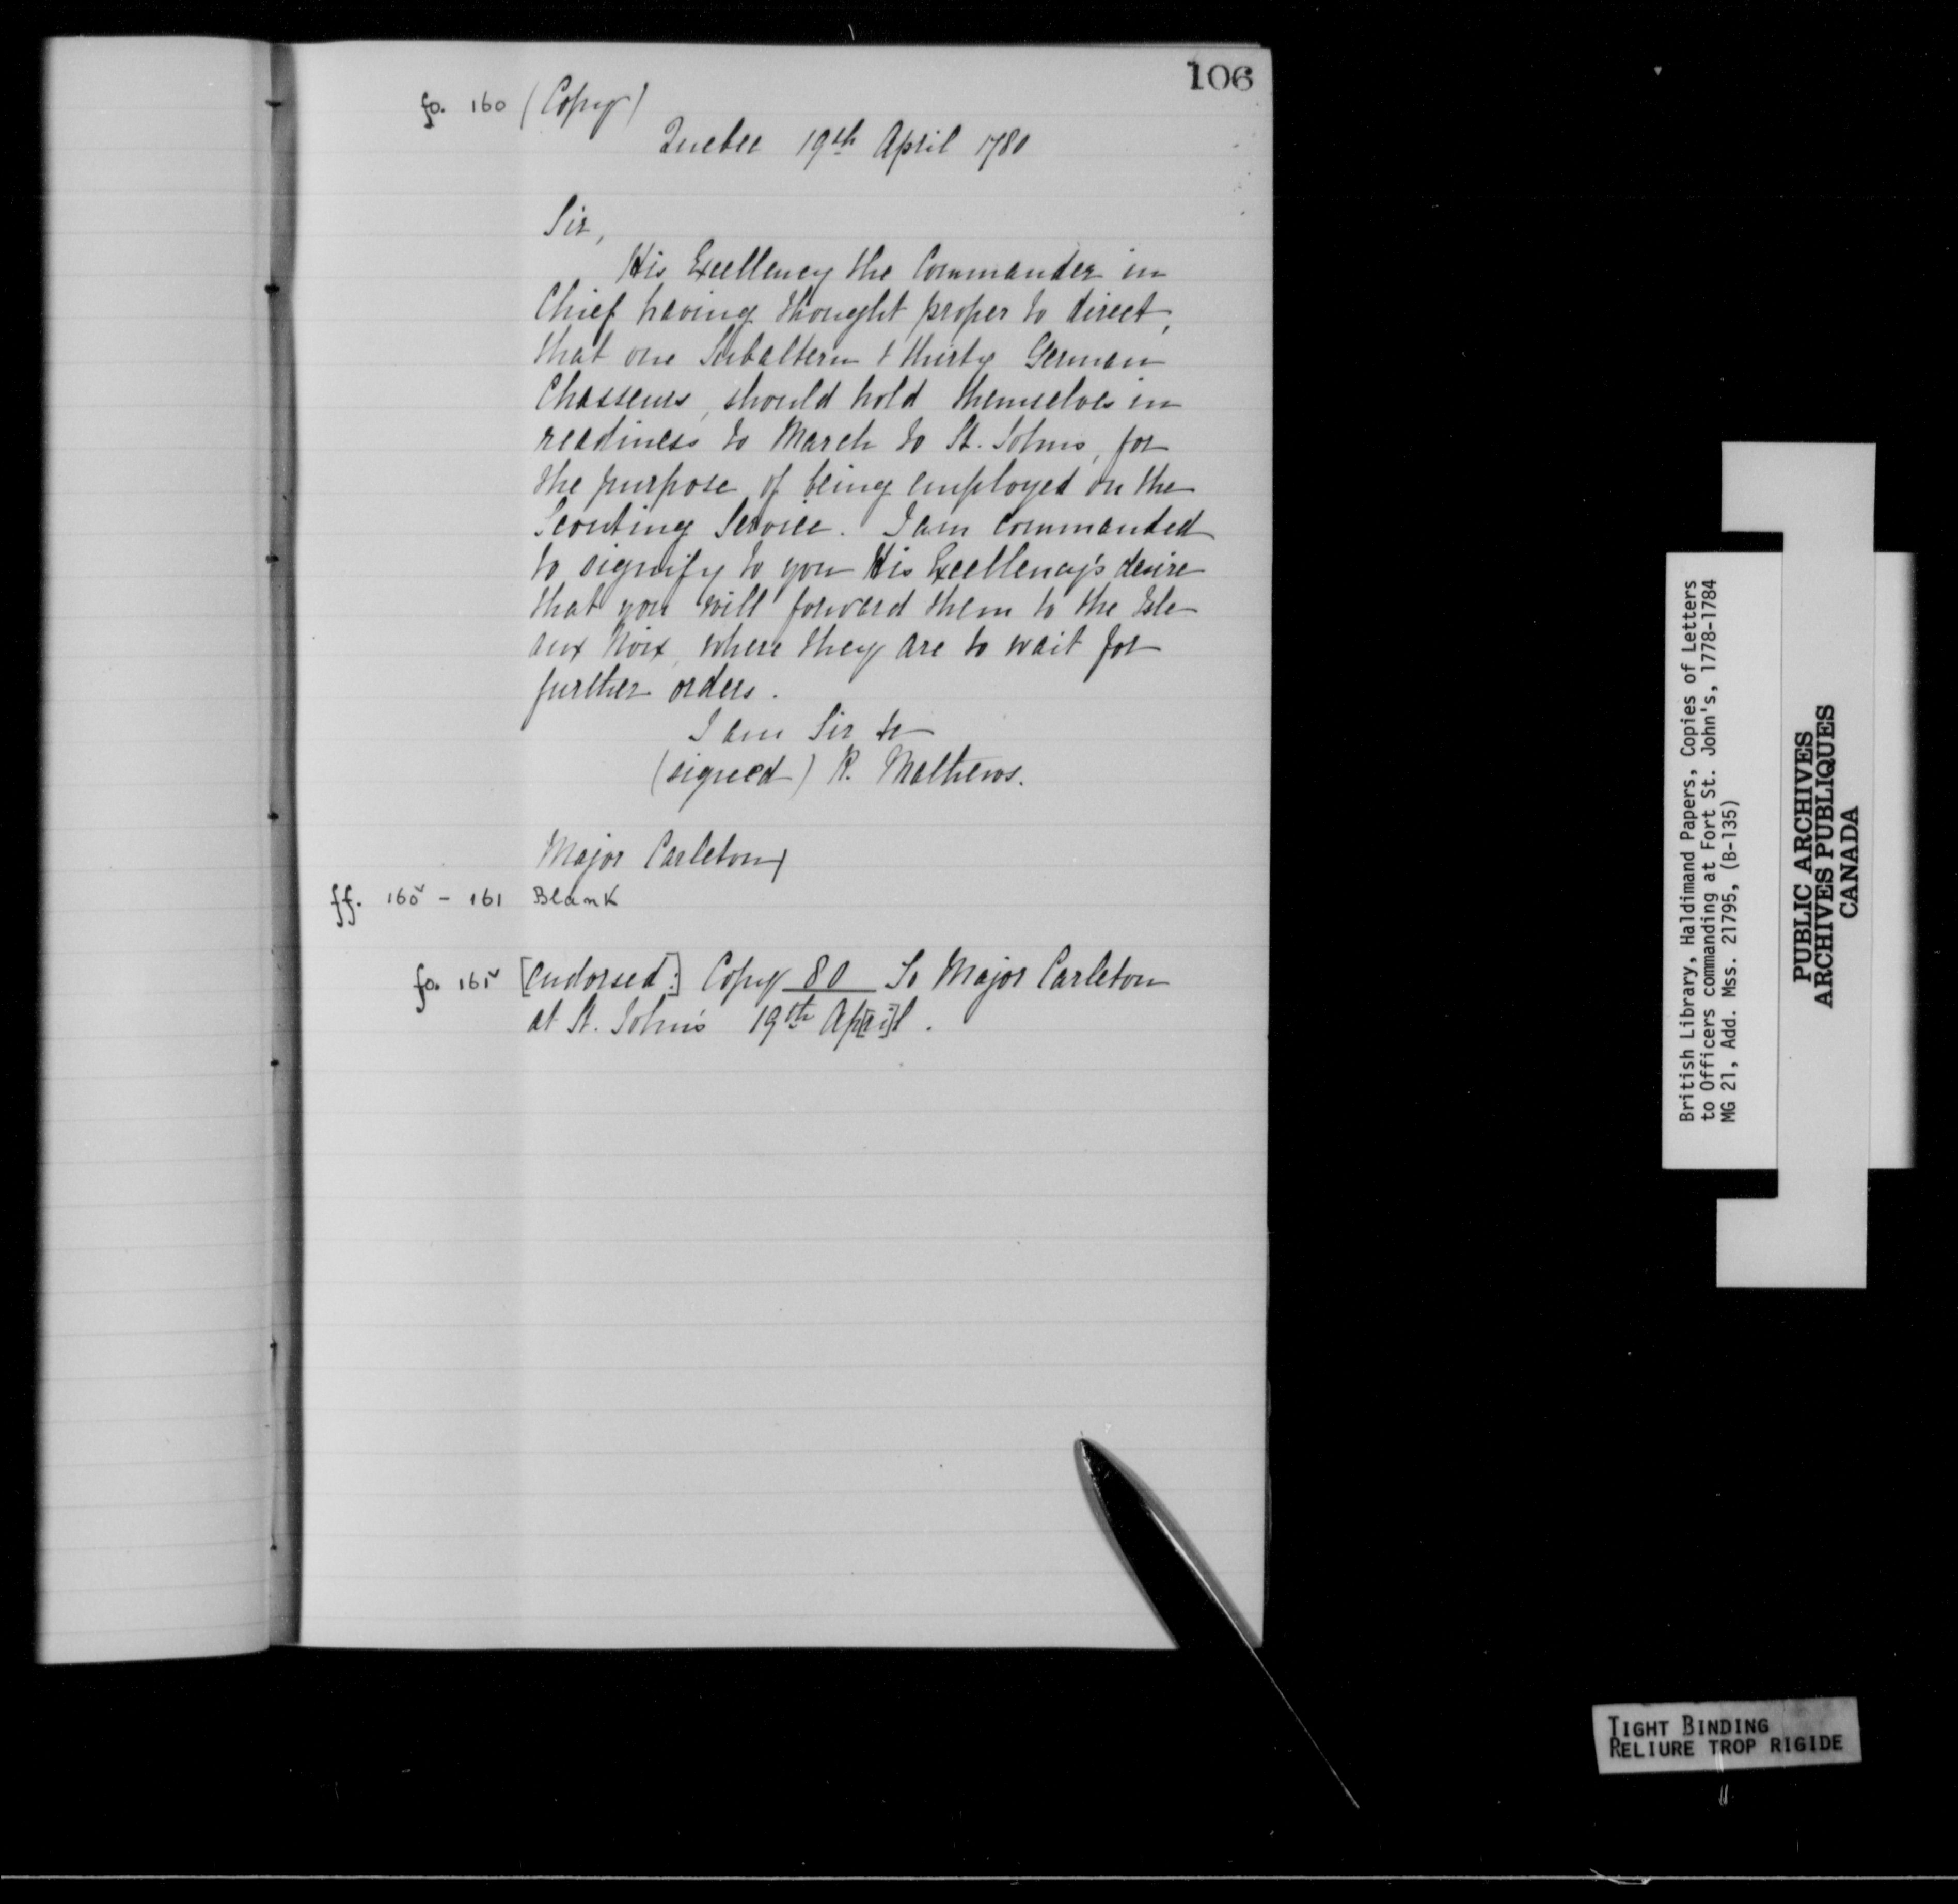 106
fo. 160 (Copy)
Quebec 19th April 1780
Sir,
His Excellency the Commander in
Chief having thought proper to direct,
that one Subaltern & thirty German
Chasseurs, should hold themselves in
readiness to March to St. Johns, for
the purpose of being employed on the
Scouting Service. I am commanded
to signify to you His Excellency's desire
that you will forward them to the Isle
aux Noix, where they are to wait for
further orders.
I am Sir &c
(signed) R. Mathews.
Major Carleton
ff. 160v - 161 Blank
fo. 161v [endorsed:] Copy 80 To Major Carleton
at St. John's 19th Ap[ri]l.
British Library, Haldimand Papers, Copies of Letters
to Officers commanding at Fort St. John's, 1778-1784
MG 21, Add. Mss. 21795, (B-135)
PUBLIC ARCHIVES
ARCHIVES PUBLIQUES
CANADA
TIGHT BINDING
RELIURE TROP RIGIDE